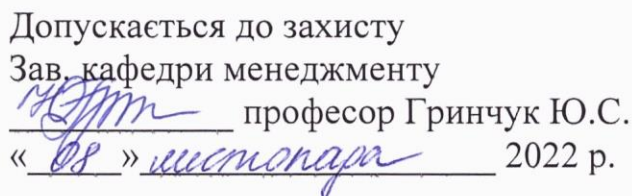 Допускається до захисту
Зав. кафедри менеджменту
професор Гринчук Ю.С.
« 08 » листопада 2022 р.